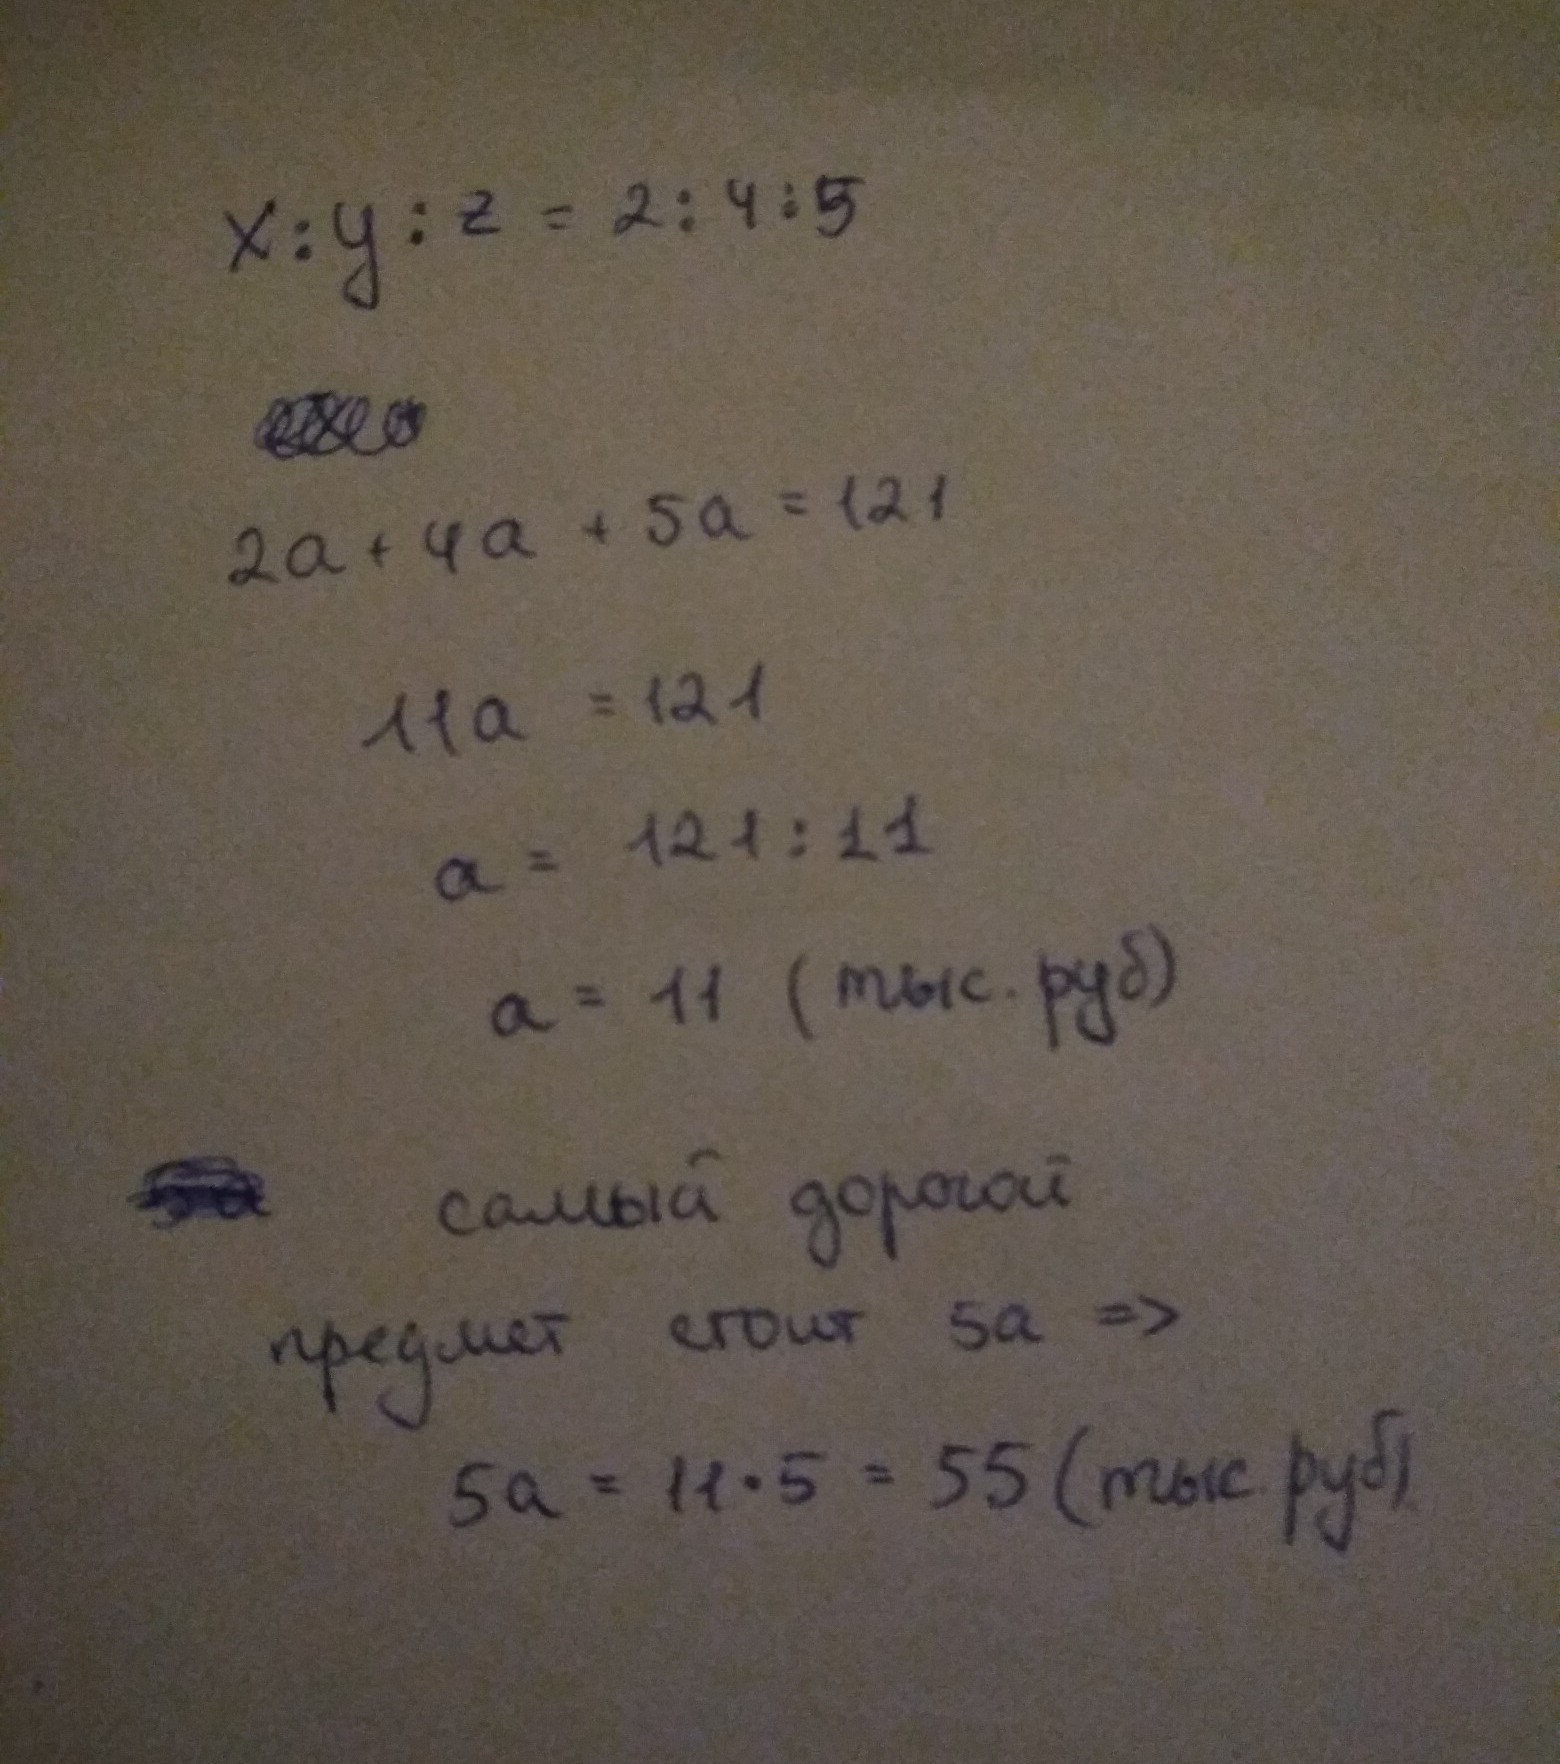 x:y:z = 2:4:5
2a + 4a + 5a = 121
11a = 121
a = 121:11
a = 11 (тыс. руб)
самый дорогой
предмет стоит 5a =>
5a = 11·5 = 55 (тыс. руб)